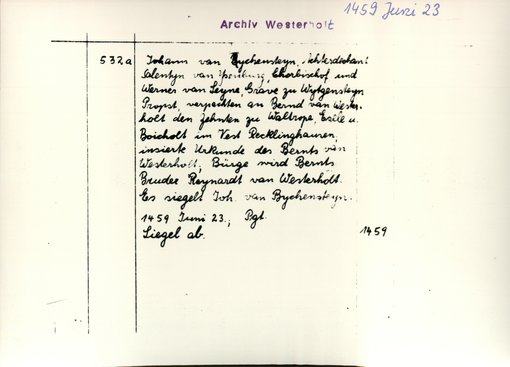 1459 Juni 23
Archiv Westerholt
532a
Johann van Bychensteyn, Afterdechant
Salentyn van Ysenburg, Chorbischof und
Werner van Seyne, Grave zu Wytgensteyn
Propst, verpachten an Bernd van Wester-
holt den Zehnten zu Waltrope, Erkle u.
Boicholt im Vest Recklinghausen,
insierte Urkunde des Bernts van
Westerholt; Bürge wird Bernts
Bruder Reynardt van Westerholt.
Es siegelt Joh. van Bychensteyn.
1459 Juni 23., Pgt.
Siegel ab.
1459